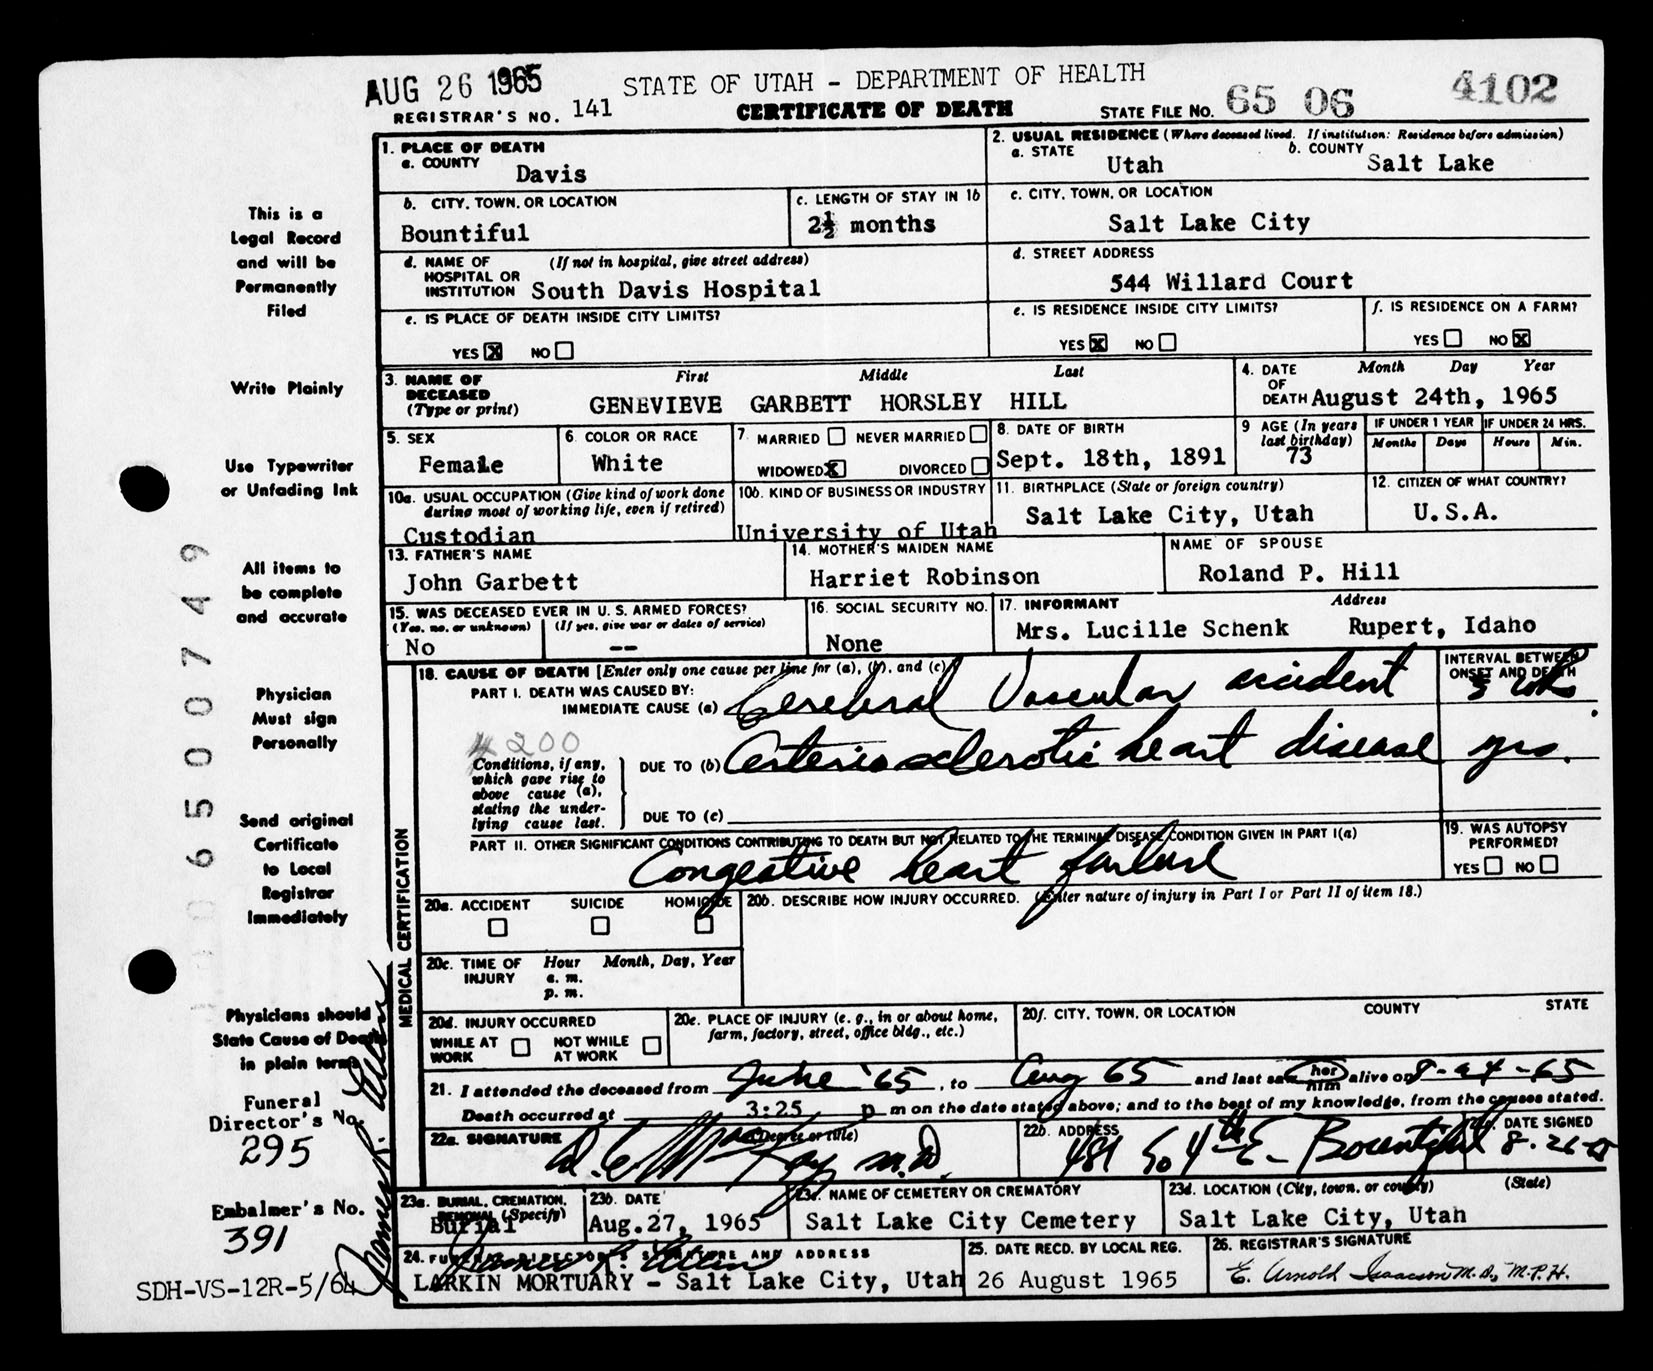 AUG 26 1965 STATE OF UTAH - DEPARTMENT OF HEALTH
REGISTRAR'S NO. 141 CERTIFICATE OF DEATH STATE FILE NO. 65 06 4102
1. PLACE OF DEATH
a. COUNTY Davis
2. USUAL RESIDENCE (Where deceased lived. If institution: Residence before admission)
a. STATE Utah b. COUNTY Salt Lake
b. CITY, TOWN, OR LOCATION Bountiful
c. LENGTH OF STAY IN 1b 2½ months
c. CITY, TOWN, OR LOCATION Salt Lake City
d. NAME OF (If not in hospital, give street address)
HOSPITAL OR
INSTITUTION South Davis Hospital
d. STREET ADDRESS
544 Willard Court
e. IS PLACE OF DEATH INSIDE CITY LIMITS?
YES X NO
e. IS RESIDENCE INSIDE CITY LIMITS?
YES X NO
f. IS RESIDENCE ON A FARM?
YES NO X
3. NAME OF DECEASED (Type or print) First Middle Last
GENEVIEVE GARBETT HORSLEY HILL
4. DATE OF DEATH Month Day Year
August 24th, 1965
5. SEX
Female
6. COLOR OR RACE
White
7. MARRIED NEVER MARRIED
WIDOWED X DIVORCED
8. DATE OF BIRTH
Sept. 18th, 1891
9 AGE (In years last birthday)
73
IF UNDER 1 YEAR
Months Days
IF UNDER 24 HRS.
Hours Min.
10a. USUAL OCCUPATION (Give kind of work done
during most of working life, even if retired)
Custodian
10b. KIND OF BUSINESS OR INDUSTRY
University of Utah
11. BIRTHPLACE (State or foreign country)
Salt Lake City, Utah
12. CITIZEN OF WHAT COUNTRY?
U.S.A.
13. FATHER'S NAME
John Garbett
14. MOTHER'S MAIDEN NAME
Harriet Robinson
NAME OF SPOUSE
Roland P. Hill
15. WAS DECEASED EVER IN U. S. ARMED FORCES?
(Yes, no, or unknown) (If yes, give war or dates of service)
No --
16. SOCIAL SECURITY NO.
None
17. INFORMANT Address
Mrs. Lucille Schenk Rupert, Idaho
MEDICAL CERTIFICATION
18. CAUSE OF DEATH [Enter only one cause per line for (a), (b), and (c)]
PART I. DEATH WAS CAUSED BY:
IMMEDIATE CAUSE (a) Cerebral Vascular accident
INTERVAL BETWEEN
ONSET AND DEATH
4200
Conditions, if any,
which gave rise to
above cause (a),
stating the under-
lying cause last.
DUE TO (b) Arteriosclerotic heart disease yrs.
DUE TO (c)
PART II. OTHER SIGNIFICANT CONDITIONS CONTRIBUTING TO DEATH BUT NOT RELATED TO THE TERMINAL DISEASE CONDITION GIVEN IN PART I(a)
Congestive heart failure
19. WAS AUTOPSY
PERFORMED?
YES NO
20a. ACCIDENT SUICIDE HOMICIDE
20b. DESCRIBE HOW INJURY OCCURRED. (Enter nature of injury in Part I or Part II of item 18.)
20c. TIME OF INJURY Hour Month, Day, Year
a. m.
p. m.
20d. INJURY OCCURRED
WHILE AT WORK NOT WHILE AT WORK
20e. PLACE OF INJURY (e. g., in or about home,
farm, factory, street, office bldg., etc.)
20f. CITY, TOWN, OR LOCATION COUNTY STATE
21. I attended the deceased from June '65, to Aug 65 and last saw her him alive on 8-24-65
Death occurred at 3:25 p m on the date stated above; and to the best of my knowledge, from the causes stated.
22a. SIGNATURE (Degree or title)
M.D.
22b. ADDRESS
481 So 4th E- Bountiful
DATE SIGNED
23a. BURIAL, CREMATION,
REMOVAL (Specify)
Burial
23b. DATE
Aug. 27, 1965
23c. NAME OF CEMETERY OR CREMATORY
Salt Lake City Cemetery
23d. LOCATION (City, town, or county) (State)
Salt Lake City, Utah
24. FUNERAL DIRECTOR'S SIGNATURE AND ADDRESS
LARKIN MORTUARY - Salt Lake City, Utah
25. DATE RECD. BY LOCAL REG.
26 August 1965
26. REGISTRAR'S SIGNATURE
E. Arnold Isaacson M.D., M.P.H.
This is a
Legal Record
and will be
Permanently
Filed
Write Plainly
Use Typewriter
or Unfading Ink
All items to
be complete
and accurate
Physician
Must sign
Personally
Send original
Certificate
to Local
Registrar
Immediately
Physicians should
State Cause of Death
in plain terms
Funeral
Director's No.
295
Embalmer's No.
391
SDH-VS-12R-5/64
James R. Allen